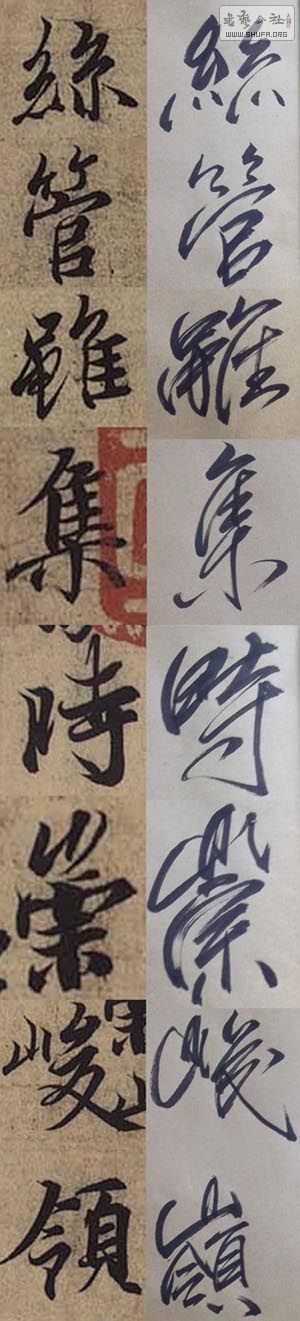 書藝公社
WWW.SHUFA.ORG
絲 絲
管 管
雖 雖
集 集
時 時
崇 崇
峻 峻
領 嶺